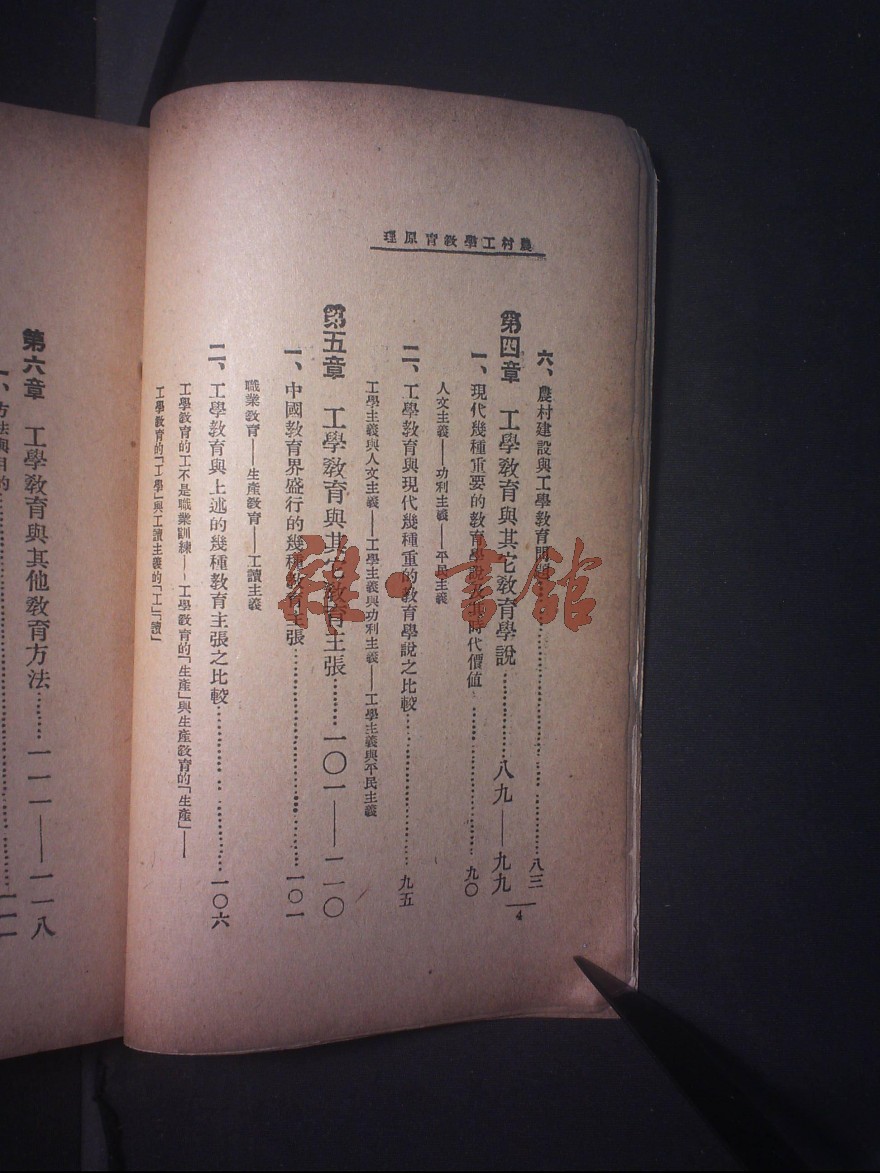 農村工學教育原理
六、農村建設與工學教育問題…………八三
第四章 工學敎育與其它敎育學說…………八九——九九
一、現代幾種重要的敎育學說及其時代價值…………九〇
人文主義——功利主義——平民主義
二、工學敎育與現代幾種重的敎育學說之比較…………九五
工學主義與人文主義——工學主義與功利主義——工學主義與平民主義
第五章 工學敎育與其它敎育主張………一〇一——一一〇
一、中國敎育界盛行的幾種敎育主張…………一〇一
職業敎育——生產敎育——工讀主義
二、工學敎育與上述的幾種敎育主張之比較…………一〇六
工學敎育的工不是職業訓練——工學敎育的「生產」與生產敎育的「生產」——
工學敎育的「工學」與工讀主義的「工」「讀」
4
第六章 工學敎育與其他敎育方法………一一一——一一八
一、方法與目的…………一一一
雜·書館